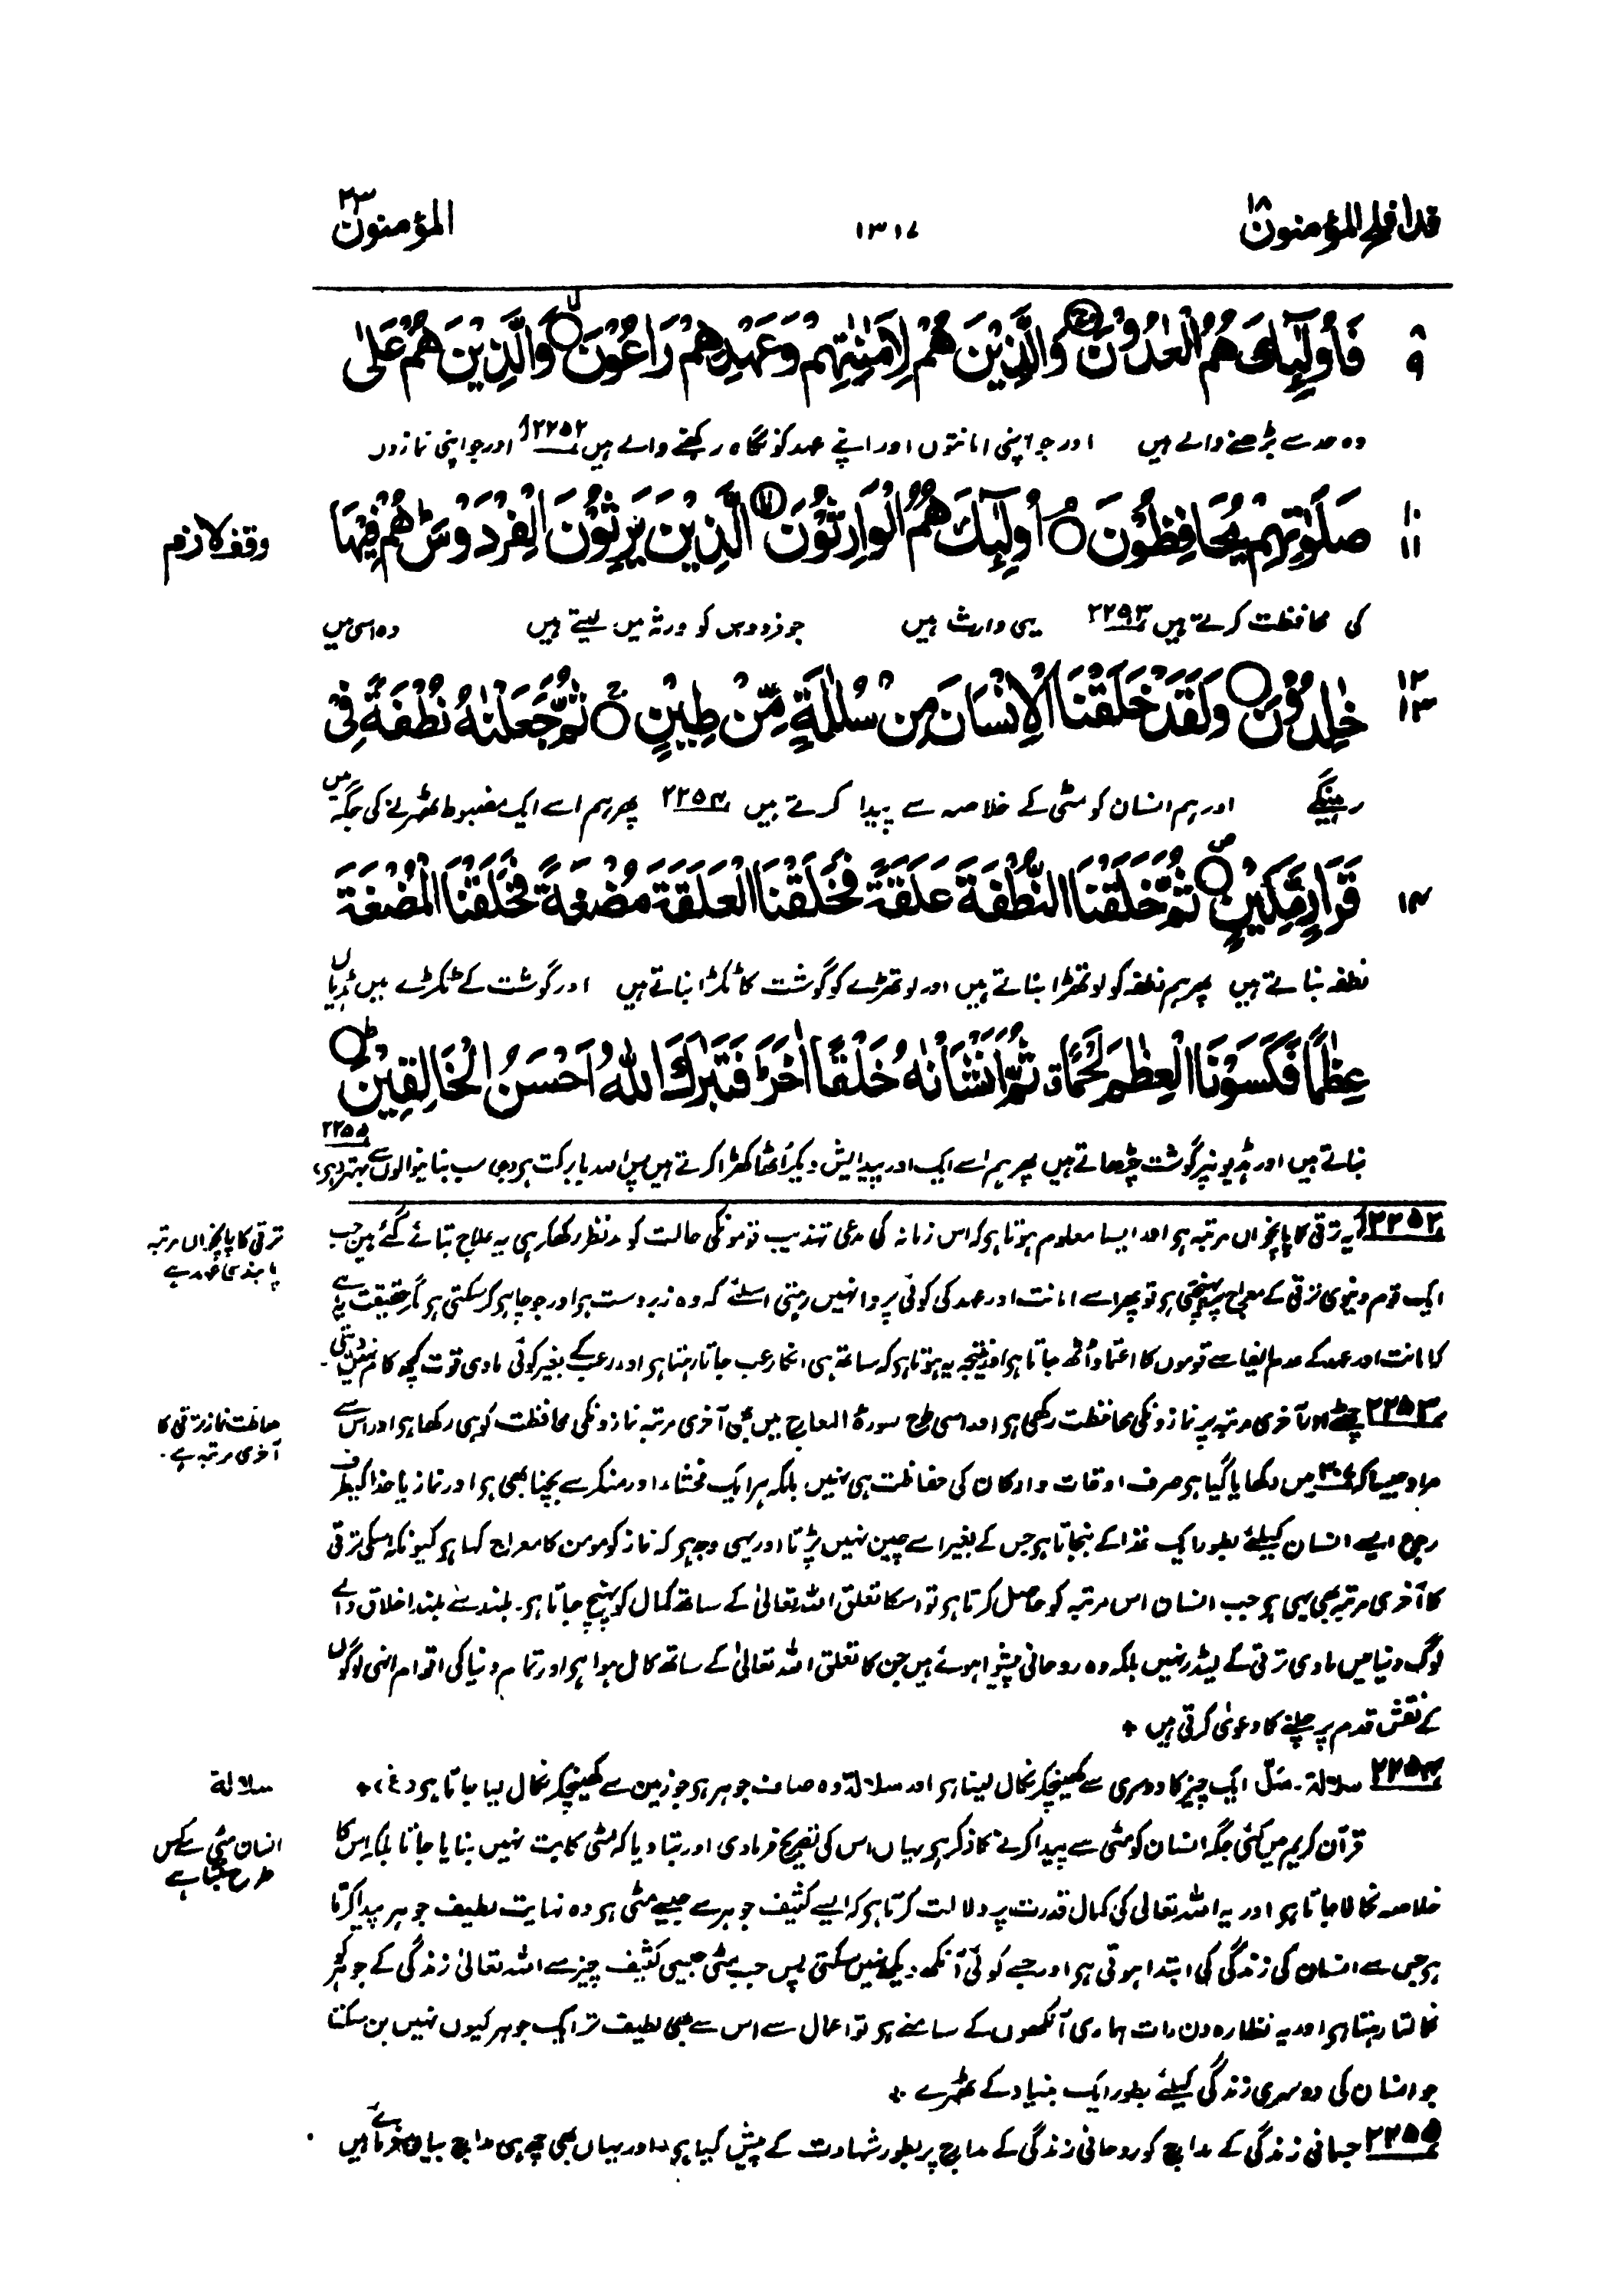 قد افلح المؤمنون ۱۸
۱۳۱۷
المؤمنون ۲۳
فَاُولٰٓئِكَ هُمُ الْعٰدُوْنَ ۞ وَالَّذِيْنَ هُمْ لِاَمٰنٰتِهِمْ وَعَهْدِهِمْ رَاعُوْنَ ۞ وَالَّذِيْنَ هُمْ عَلٰى
۸
۹
وہ حد سے بڑھنے والے ہیں اور جو اپنی امانتوں اور اپنے عہد کو نگاہ رکھنے والے ہیں ۲۲۵۲ا اور جو اپنی نمازوں
صَلَوٰتِهِمْ يُحَافِظُوْنَ ۞ اُولٰٓئِكَ هُمُ الْوَارِثُوْنَ ۞ الَّذِيْنَ يَرِثُوْنَ الْفِرْدَوْسَ ؕ هُمْ فِيْهَا
۱۰
۱۱
وقف لازم
کی محافظت کرتے ہیں ۲۲۵۳ یہی وارث ہیں جو فردوس کو ورثہ میں لیتے ہیں وہ اسی میں
خٰلِدُوْنَ ۞ وَلَقَدْ خَلَقْنَا الْاِنْسَانَ مِنْ سُلٰلَةٍ مِّنْ طِيْنٍ ۞ ثُمَّ جَعَلْنٰهُ نُطْفَةً فِىْ
۱۲
۱۳
رہینگے اور ہم انسان کو مٹی کے خلاصہ سے پیدا کرتے ہیں ۲۲۵۴ پھر ہم اسے ایک مضبوط ٹھہرنے کی جگہ میں
قَرَارٍ مَّكِيْنٍ ۞ ثُمَّ خَلَقْنَا النُّطْفَةَ عَلَقَةً فَخَلَقْنَا الْعَلَقَةَ مُضْغَةً فَخَلَقْنَا الْمُضْغَةَ
۱۴
نطفہ بناتے ہیں پھر ہم نطفہ کو لوتھڑا بناتے ہیں اور لوتھڑے کو گوشت کا ٹکڑا بناتے ہیں اور گوشت کے ٹکڑے میں ہڈیاں
عِظٰمًا فَكَسَوْنَا الْعِظٰمَ لَحْمًا ۗ ثُمَّ اَنْشَاْنٰهُ خَلْقًا اٰخَرَ ؕ فَتَبٰرَكَ اللّٰهُ اَحْسَنُ الْخَالِقِيْنَ ۞
بناتے ہیں اور ہڈیوں پر گوشت چڑھاتے ہیں پھر ہم اسے ایک اور پیدایش دیکر اُٹھا کھڑا کرتے ہیں پس اللہ بابرکت ہے وہ سب بنانیوالوں سے بہتر ہے ۲۲۵۵
۲۲۵۲ا یہ ترقی کا پانچواں مرتبہ ہے اور ایسا معلوم ہوتا ہے کہ اس زمانہ کی مدعی تہذیب قوموں کی حالت کو مدنظر رکھکر ہی یہ علاج بتائے گئے ہیں جب
ترقی کا پانچواں مرتبہ
پابندی عہد ہے
ایک قوم دنیوی ترقی کے معراج پر پہنچتی ہے تو پھر اسے امانت اور عہد کی کوئی پروا نہیں رہتی اسلئے کہ وہ زبردست ہے اور جو چاہے کر سکتی ہے مگر حقیقت یہ ہے
کہ امانت اور عہد کے عدم ایفا سے قوموں کا اعتماد اُٹھ جاتا ہے اور نتیجہ یہ ہوتا ہے کہ ساتھ ہی انکا رعب جاتا رہتا ہے اور رعب کے بغیر کوئی مادی قوت کچھ کام نہیں دیتی ۔
۲۲۵۳ چھٹے اور آخری مرتبہ پر نمازوں کی محافظت رکھی ہے اور اسی طرح سورۃ المعارج میں بھی آخری مرتبہ نمازوں کی محافظت کو ہی رکھا ہے اور اس سے
حفاظت نماز ترقی کا
آخری مرتبہ ہے ۔
مراد جیسا کہ ۳۰۷ میں دکھایا گیا ہے صرف اوقات و ارکان کی حفاظت ہی نہیں بلکہ ہر ایک فحشاء اور منکر سے بچنا بھی ہے اور نماز یا خدا کی طرف
رجوع ایسے انسان کیلئے بطور ایک غذا کے بنجاتا ہے جس کے بغیر اسے چین نہیں پڑتا اور یہی وجہ ہے کہ نماز کو مومن کا معراج کہا ہے کیونکہ اسکی ترقی
کا آخری مرتبہ بھی یہی ہے جب انسان اس مرتبہ کو حاصل کرتا ہے تو اسکا تعلق اللہ تعالیٰ کے ساتھ کمال کو پہنچ جاتا ہے ۔ بلند سے بلند اخلاق والے
لوگ دنیا میں مادی ترقی کے لیڈر نہیں بلکہ وہ روحانی پیشوا ہوئے ہیں جن کا تعلق اللہ تعالیٰ کے ساتھ کامل ہوا ہے اور تمام دنیا کی اقوام انہی لوگوں
کے نقش قدم پر چلنے کا دعویٰ کرتی ہیں +
۲۲۵۴ سلالۃ ۔ سَلّ ایک چیز کا دوسری سے کھینچکر نکال لینا ہے اور سلالۃ وہ صاف جوہر ہے جو زمین سے کھینچکر نکال لیا جاتا ہے (غ) +
سلالۃ
قرآن کریم میں کئی جگہ انسان کو مٹی سے پیدا کرنے کا ذکر ہے یہاں اس کی تصریح فرمادی اور بتا دیا کہ مٹی کا بت نہیں بنایا جاتا بلکہ اس کا
انسان مٹی سے کس
طرح بنتا ہے
خلاصہ نکالا جاتا ہے اور یہ اللہ تعالیٰ کی کمال قدرت پر دلالت کرتا ہے کہ ایسے کثیف جوہر سے جیسے مٹی ہے وہ نہایت لطیف جوہر پیدا کرتا
ہے جس سے انسان کی زندگی کی ابتدا ہوتی ہے اور جسے کوئی آنکھ دیکھ نہیں سکتی پس جب مٹی جیسی کثیف چیز سے اللہ تعالیٰ زندگی کے جوہر کو
نکالتا رہتا ہے اور یہ نظارہ دن رات ہماری آنکھوں کے سامنے ہے تو اعمال سے اس سے بھی لطیف تر ایک جوہر کیوں نہیں بن سکتا
جو انسان کی دوسری زندگی کیلئے بطور ایک بنیاد کے ٹھہرے +
۲۲۵۵ جسمانی زندگی کے مدارج کو روحانی زندگی کے مدارج پر بطور شہادت کے پیش کیا ہے اور یہاں بھی چھ ہی مدارج بیان فرمائے ہیں